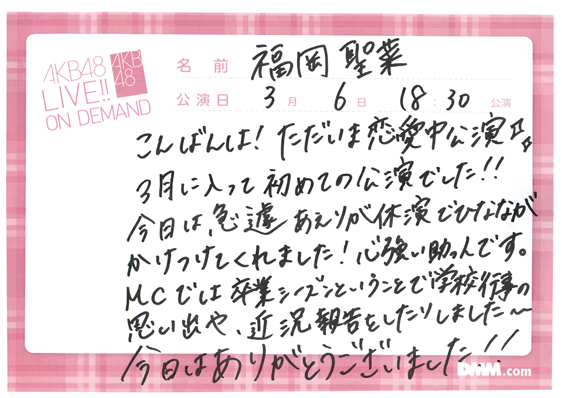 AKB48
LIVE!!
ON DEMAND
AKB
48
名前 福岡 聖菜
公演日 3月 6日 18:30 公演
こんばんは！ただいま恋愛中公演♪
3月に入って初めての公演でした！！
今日は、急遽あえりが休演でひなながが
かけつけてくれました！心強い助っ人です。
MCでは卒業シーズンということで学校行事の
思い出や、近況報告をしたりしました〜
今日はありがとうございました！！
DMM.com